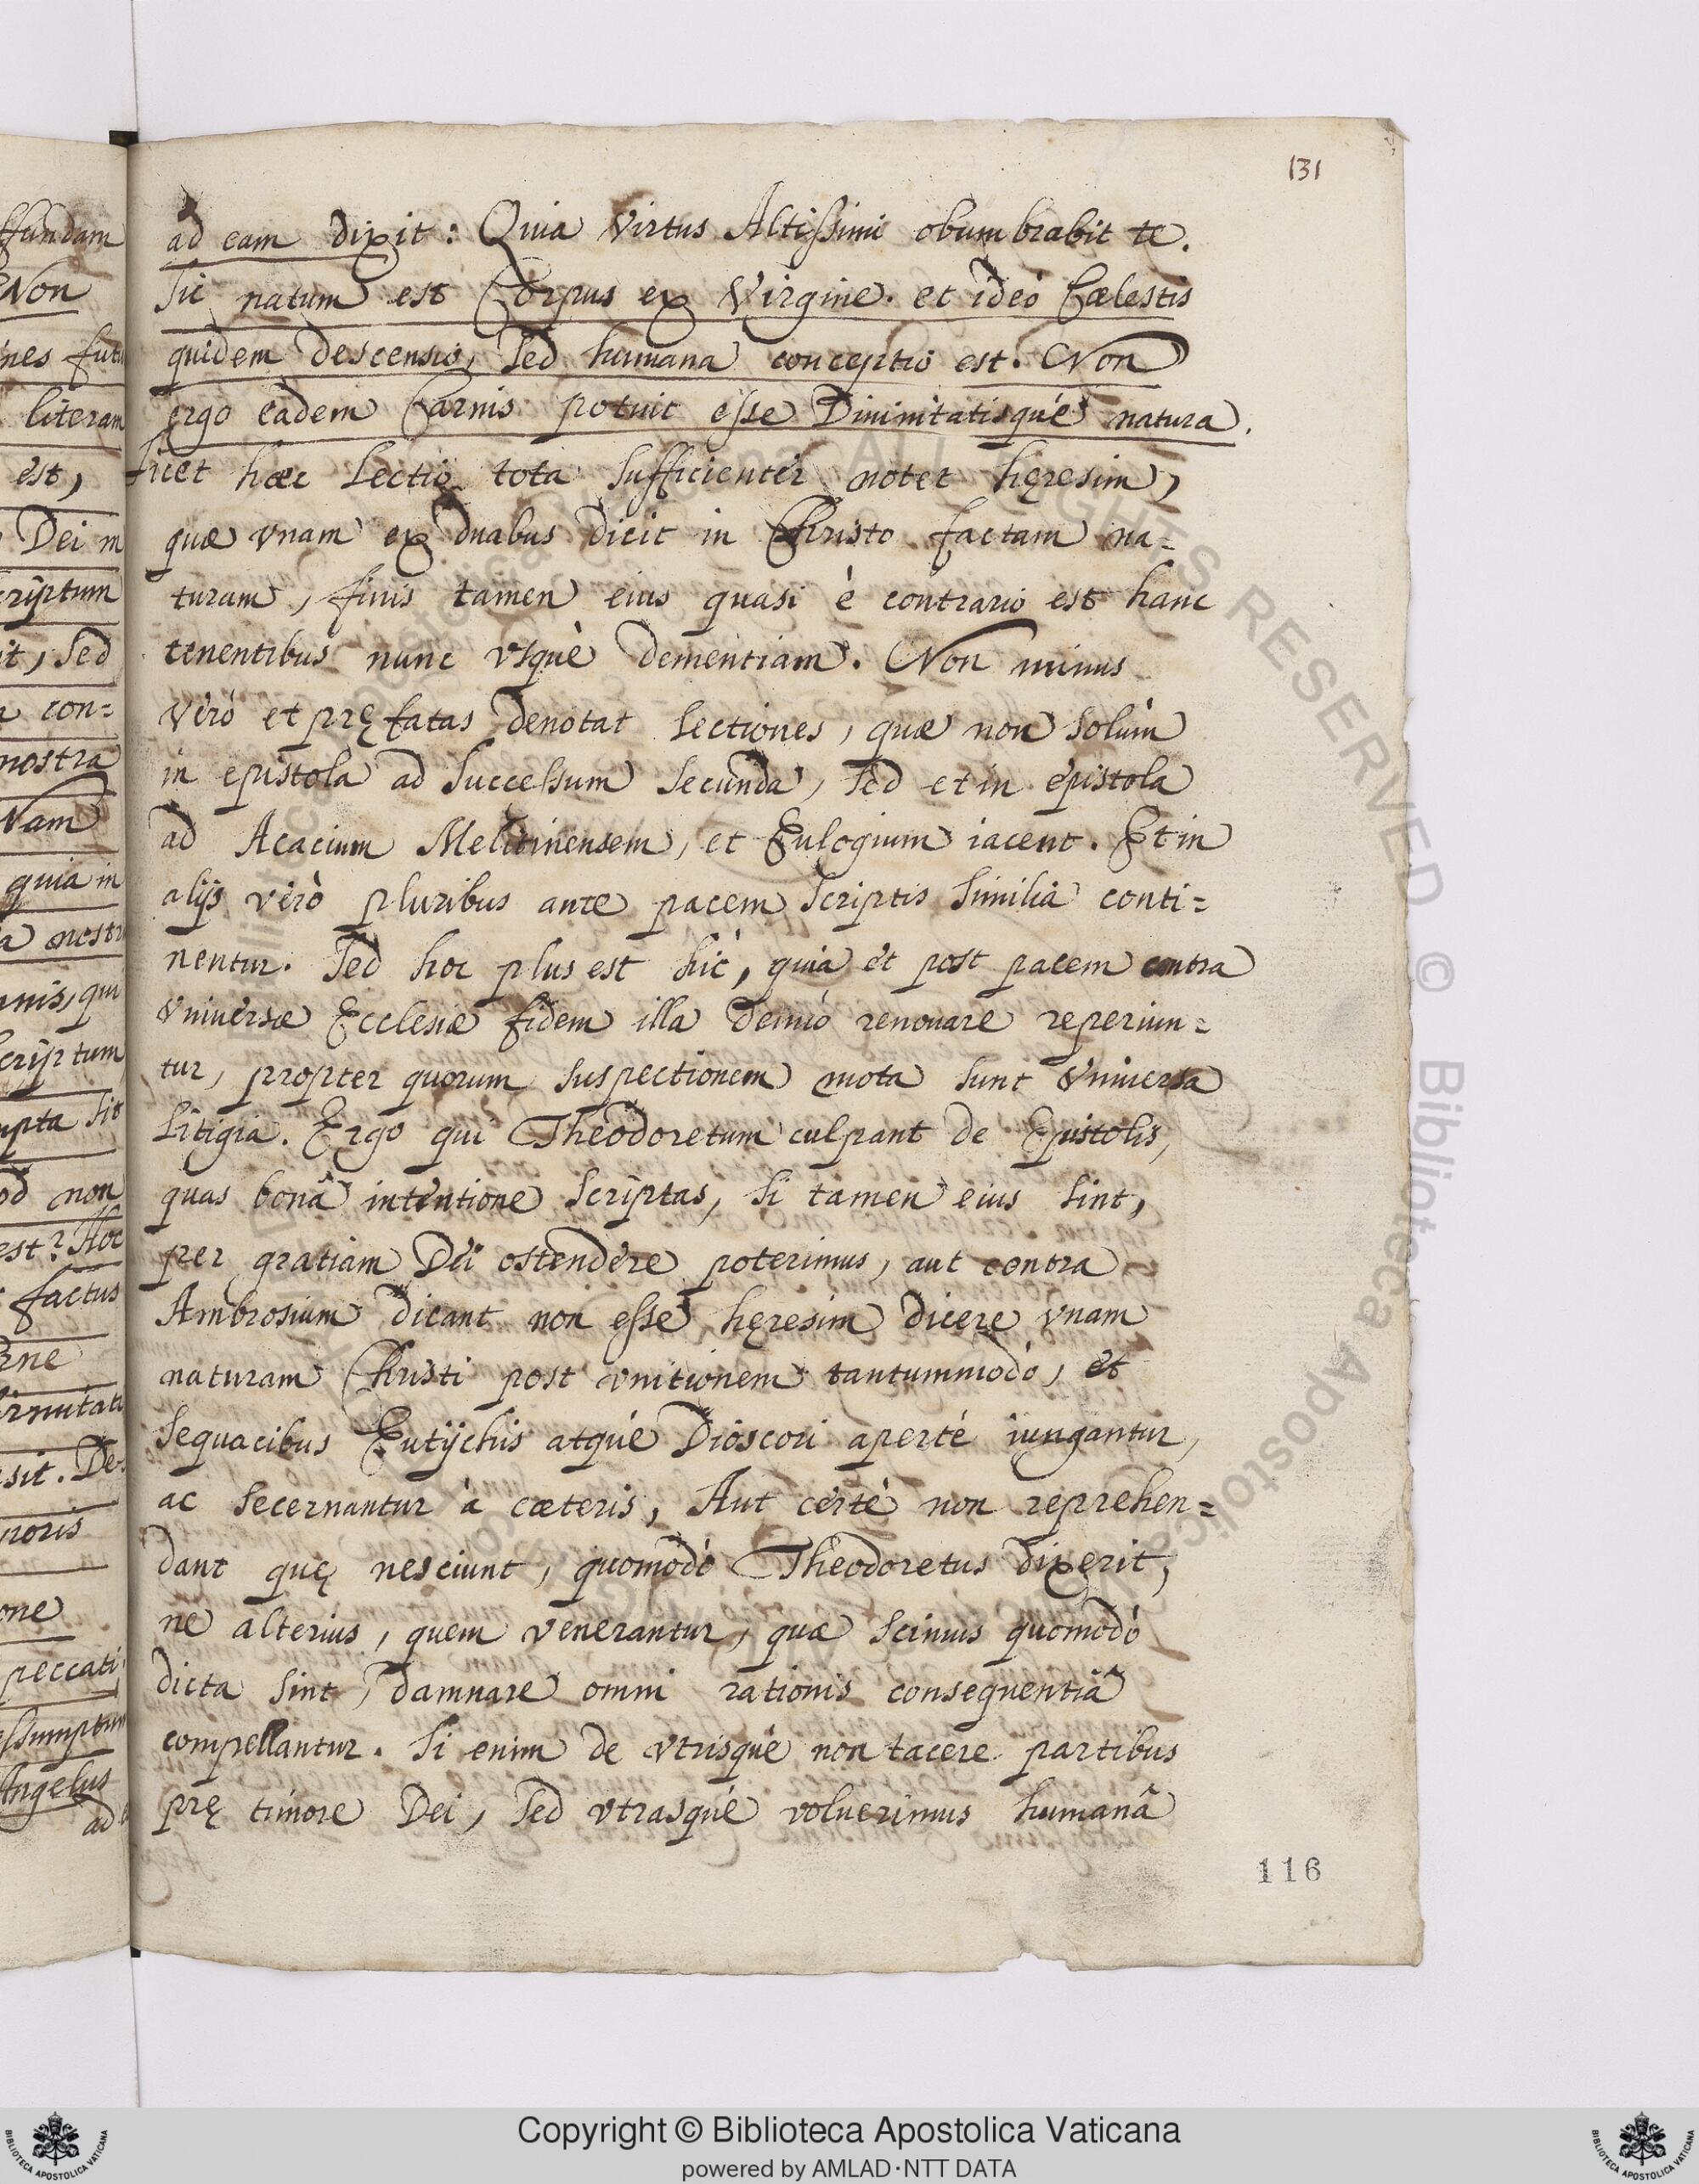 131
ad eam dixit: Quia Virtus Altissimi obumbrabit te.
Sic natum est Corpus ex Virgine. et ideò Cælestis
quidem descensio, sed humana conceptio est. Non
ergo eadem Carnis potuit esse Diuinitatisquè natura.
Licet hæc Lectio tota sufficienter notet hęresim,
quæ vnam ex duabus dicit in Christo factam na=
turam, finis tamen eius quasi è contrario est hanc
tenentibus nunc vsquè dementiam. Non minus
verò et pręfatas denotat lectiones, quæ non solùm
in epistola ad Successum secunda, sed et in epistola
ad Acacium Melitinensem, et Eulogium iacent. Et in
alijs verò pluribus ante pacem scriptis similia conti=
nentur. Sed hoc plus est hic, quia et post pacem contra
vniuersæ Ecclesiæ fidem illa denuò renouare reperiun=
tur, propter quorum suspectionem mota sunt vniuersa
litigia. Ergo qui Theodoretum culpant de Epistolis,
quas bonâ intentione scriptas, si tamen eius sint,
per gratiam Dei ostendere poterimus, aut contra
Ambrosium dicant non esse hęresim dicere vnam
naturam Christi post vnitionem tantummodò, et
sequacibus Eutychis atquè Dioscori apertè iungantur,
ac secernantur à cæteris, Aut certè non reprehen=
dant quę nesciunt, quomodò Theodoretus dixerit,
ne alterius, quem venerantur, quæ scimus quomodò
dicta sint, damnare omni rationis consequentiâ
compellantur. Si enim de vtrisquè non tacere partibus
prę timore Dei, sed vtrasquè voluerimus humanâ
116
ffundam
Non
literam
est,
Dei m
criptum
it, sed
con=
nostra
Nam
quia in
nis, qui
criptum
sit
od non
est? Hoc
factus
sit. De=
noris
one
peccati,
ssumptum
Angelus
ad e
Copyright © Biblioteca Apostolica Vaticana
powered by AMLAD·NTT DATA
BIBLIOTECA APOSTOLICA VATICANA
BIBLIOTECA APOSTOLICA VATICANA